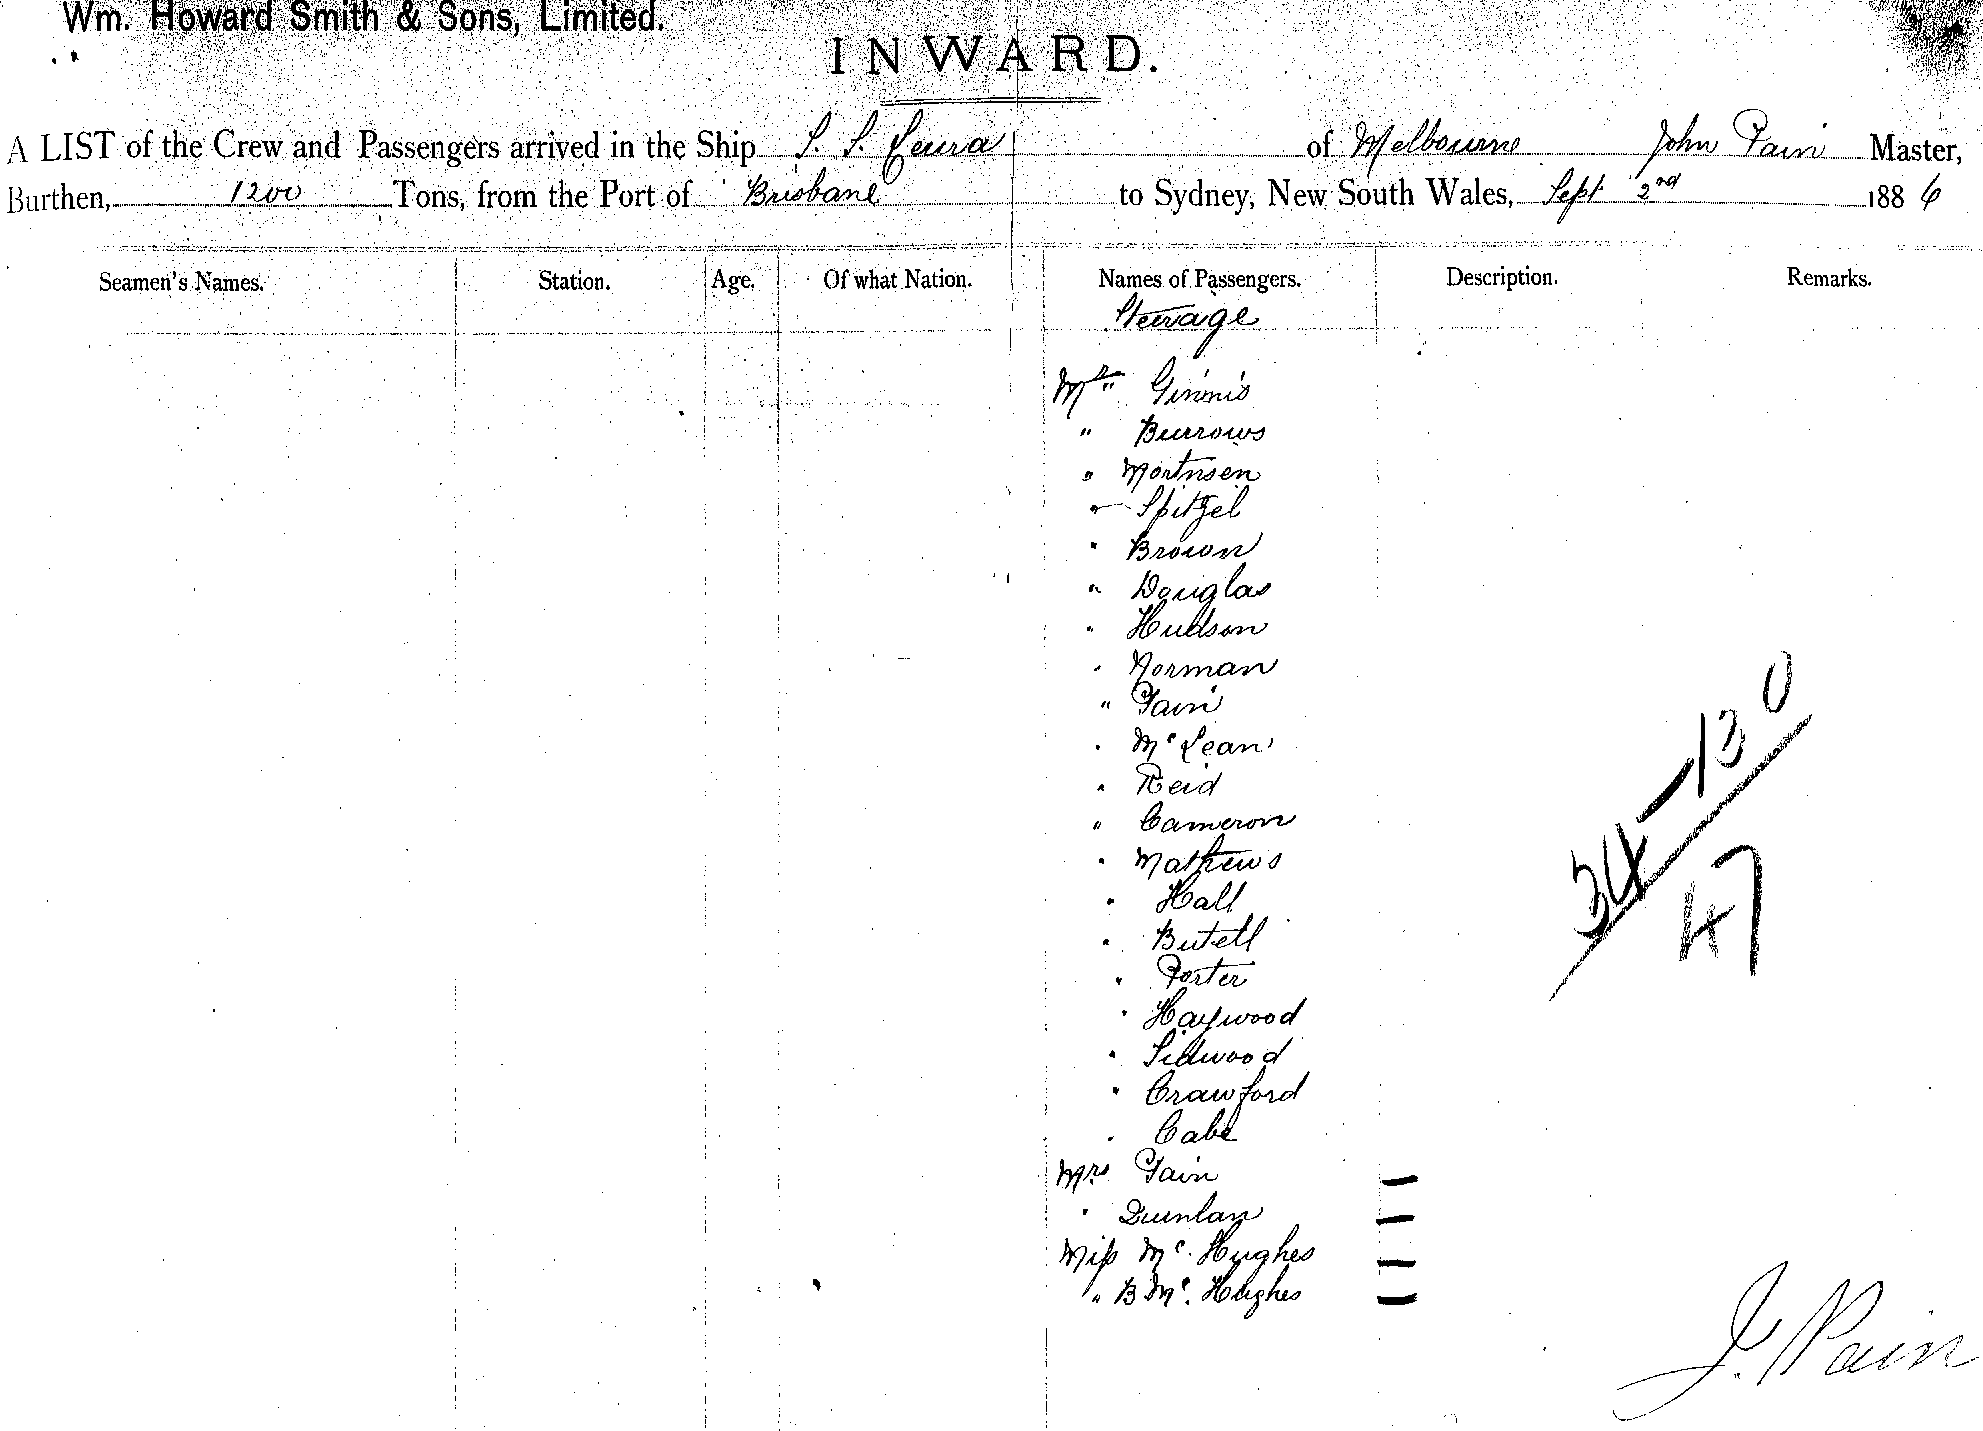 Wm. Howard Smith & Sons, Limited.
INWARD.
A LIST of the Crew and Passengers arrived in the Ship S. S. Leura of Melbourne John Pain Master,
Burthen, 1200 Tons, from the Port of Brisbane to Sydney, New South Wales, Sept 2nd 1886
Seamen's Names. Station. Age. Of what Nation. Names of Passengers. Description. Remarks.
Steerage
Mr " Ginnis
" Burrows
" Mortnsen
" Spitzel
" Brown
" Douglas
" Hudson
" Norman
" Pain
" Mc Lean
" Reid
" Cameron
" Mathews
" Hall
" Butell
" Porter
" Haywood
" Sidwood
" Crawford
" Cabe
Mrs Pain
" Quinlan
Miss Mc Hughes
" B Mc. Hughes
34 - 13 0
47
J. Pain